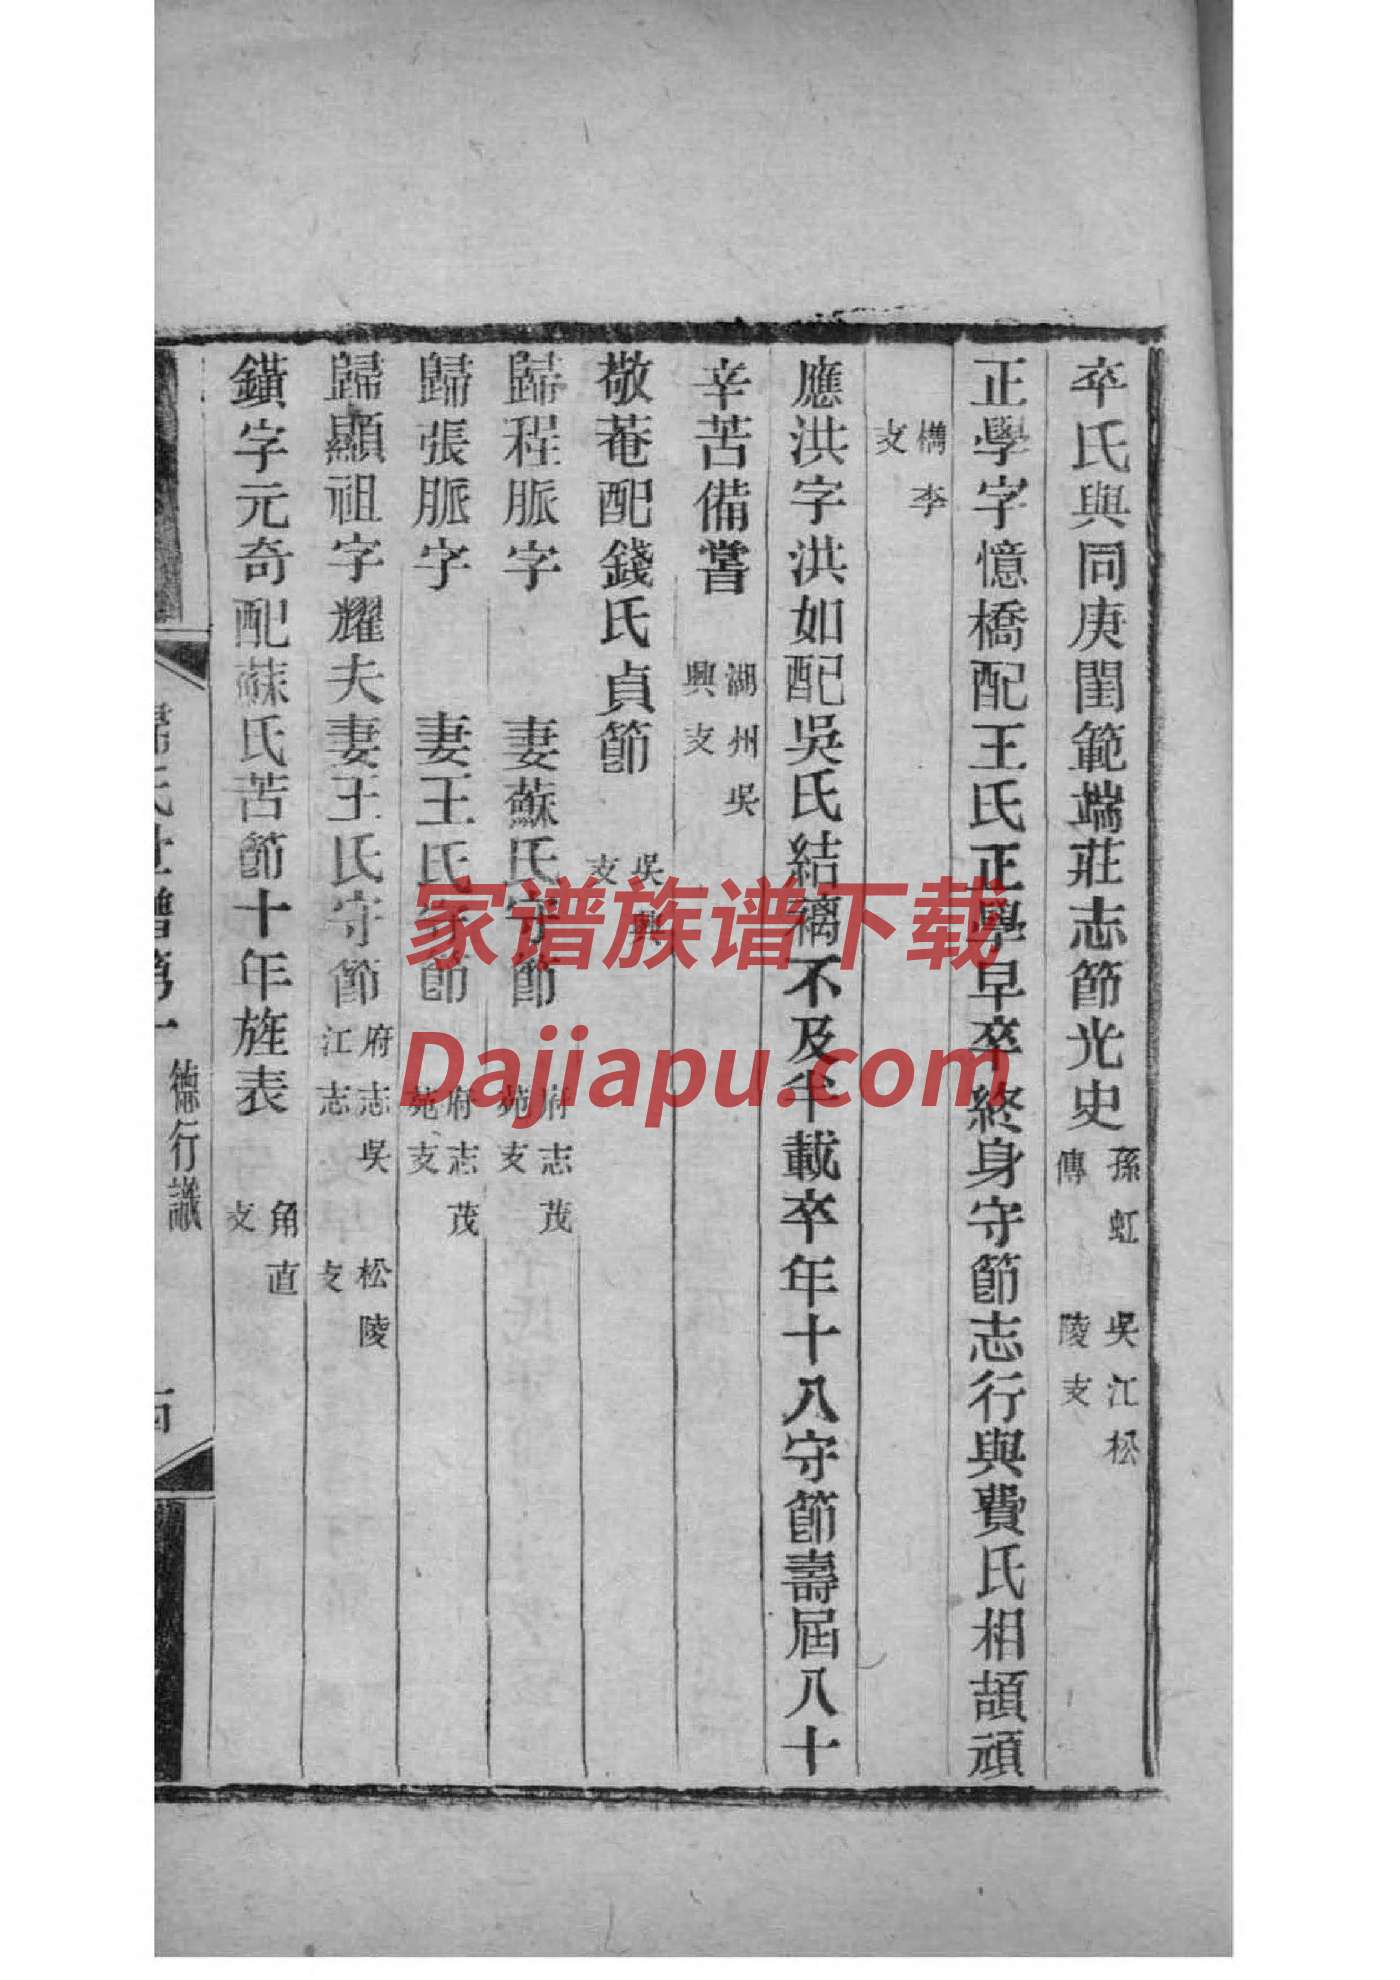 卒氏與同庚閨範端莊志節光史 孫虹傳 吳江松陵支
正學字憶橋配王氏正學早卒終身守節志行與費氏相頡頏
檇李支
應洪字洪如配吳氏結褵不及半載卒年十八守節壽屆八十
辛苦備嘗 湖州吳興支
敬菴配錢氏貞節 吳興支
歸程脈字 妻蘇氏守節 府志茂苑支
歸張脈字 妻王氏守節 府志茂苑支
歸顯祖字耀夫妻王氏守節 府志吳江志 松陵支
鐄字元奇配蘇氏苦節十年旌表 角直支
歸氏世譜第一 德行譏
家谱族谱下载
Dajiapu.com